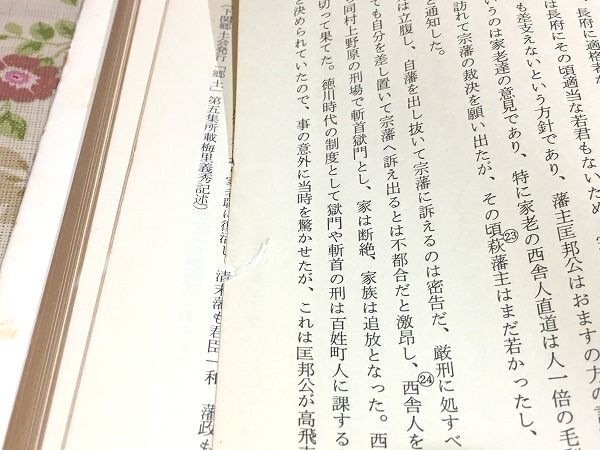 は長府に適格な
は長府にその頃適当な若君もないため
も差支えないという方針であり、藩主匡邦公はおますの方の
いうのは家老達の意見であり、特に家老の西舎人直道は人一倍の毛
訪れて宗藩の裁決を願い出たが、その頃萩藩主はまだ若かったし、
㉓
と通知した。
は立腹し、自藩を出し抜いて宗藩に訴えるのは密告だ、厳刑に処すべ
ても自分を差し置いて宗藩へ訴え出るとは不都合だと激昂し、西舎人を
㉔
同村上野原の刑場で斬首獄門とし、家は断絶、家族は追放となった。西
切って果てた。徳川時代の制度として獄門や斬首の刑は百姓町人に課する
と決められていたので、事の意外に当時を驚かせたが、これは匡邦公が高飛
は復活し、清末藩も君臣一和 藩政も
（下関郷土会発行「郷土」第五集所載梅里義秀記述）